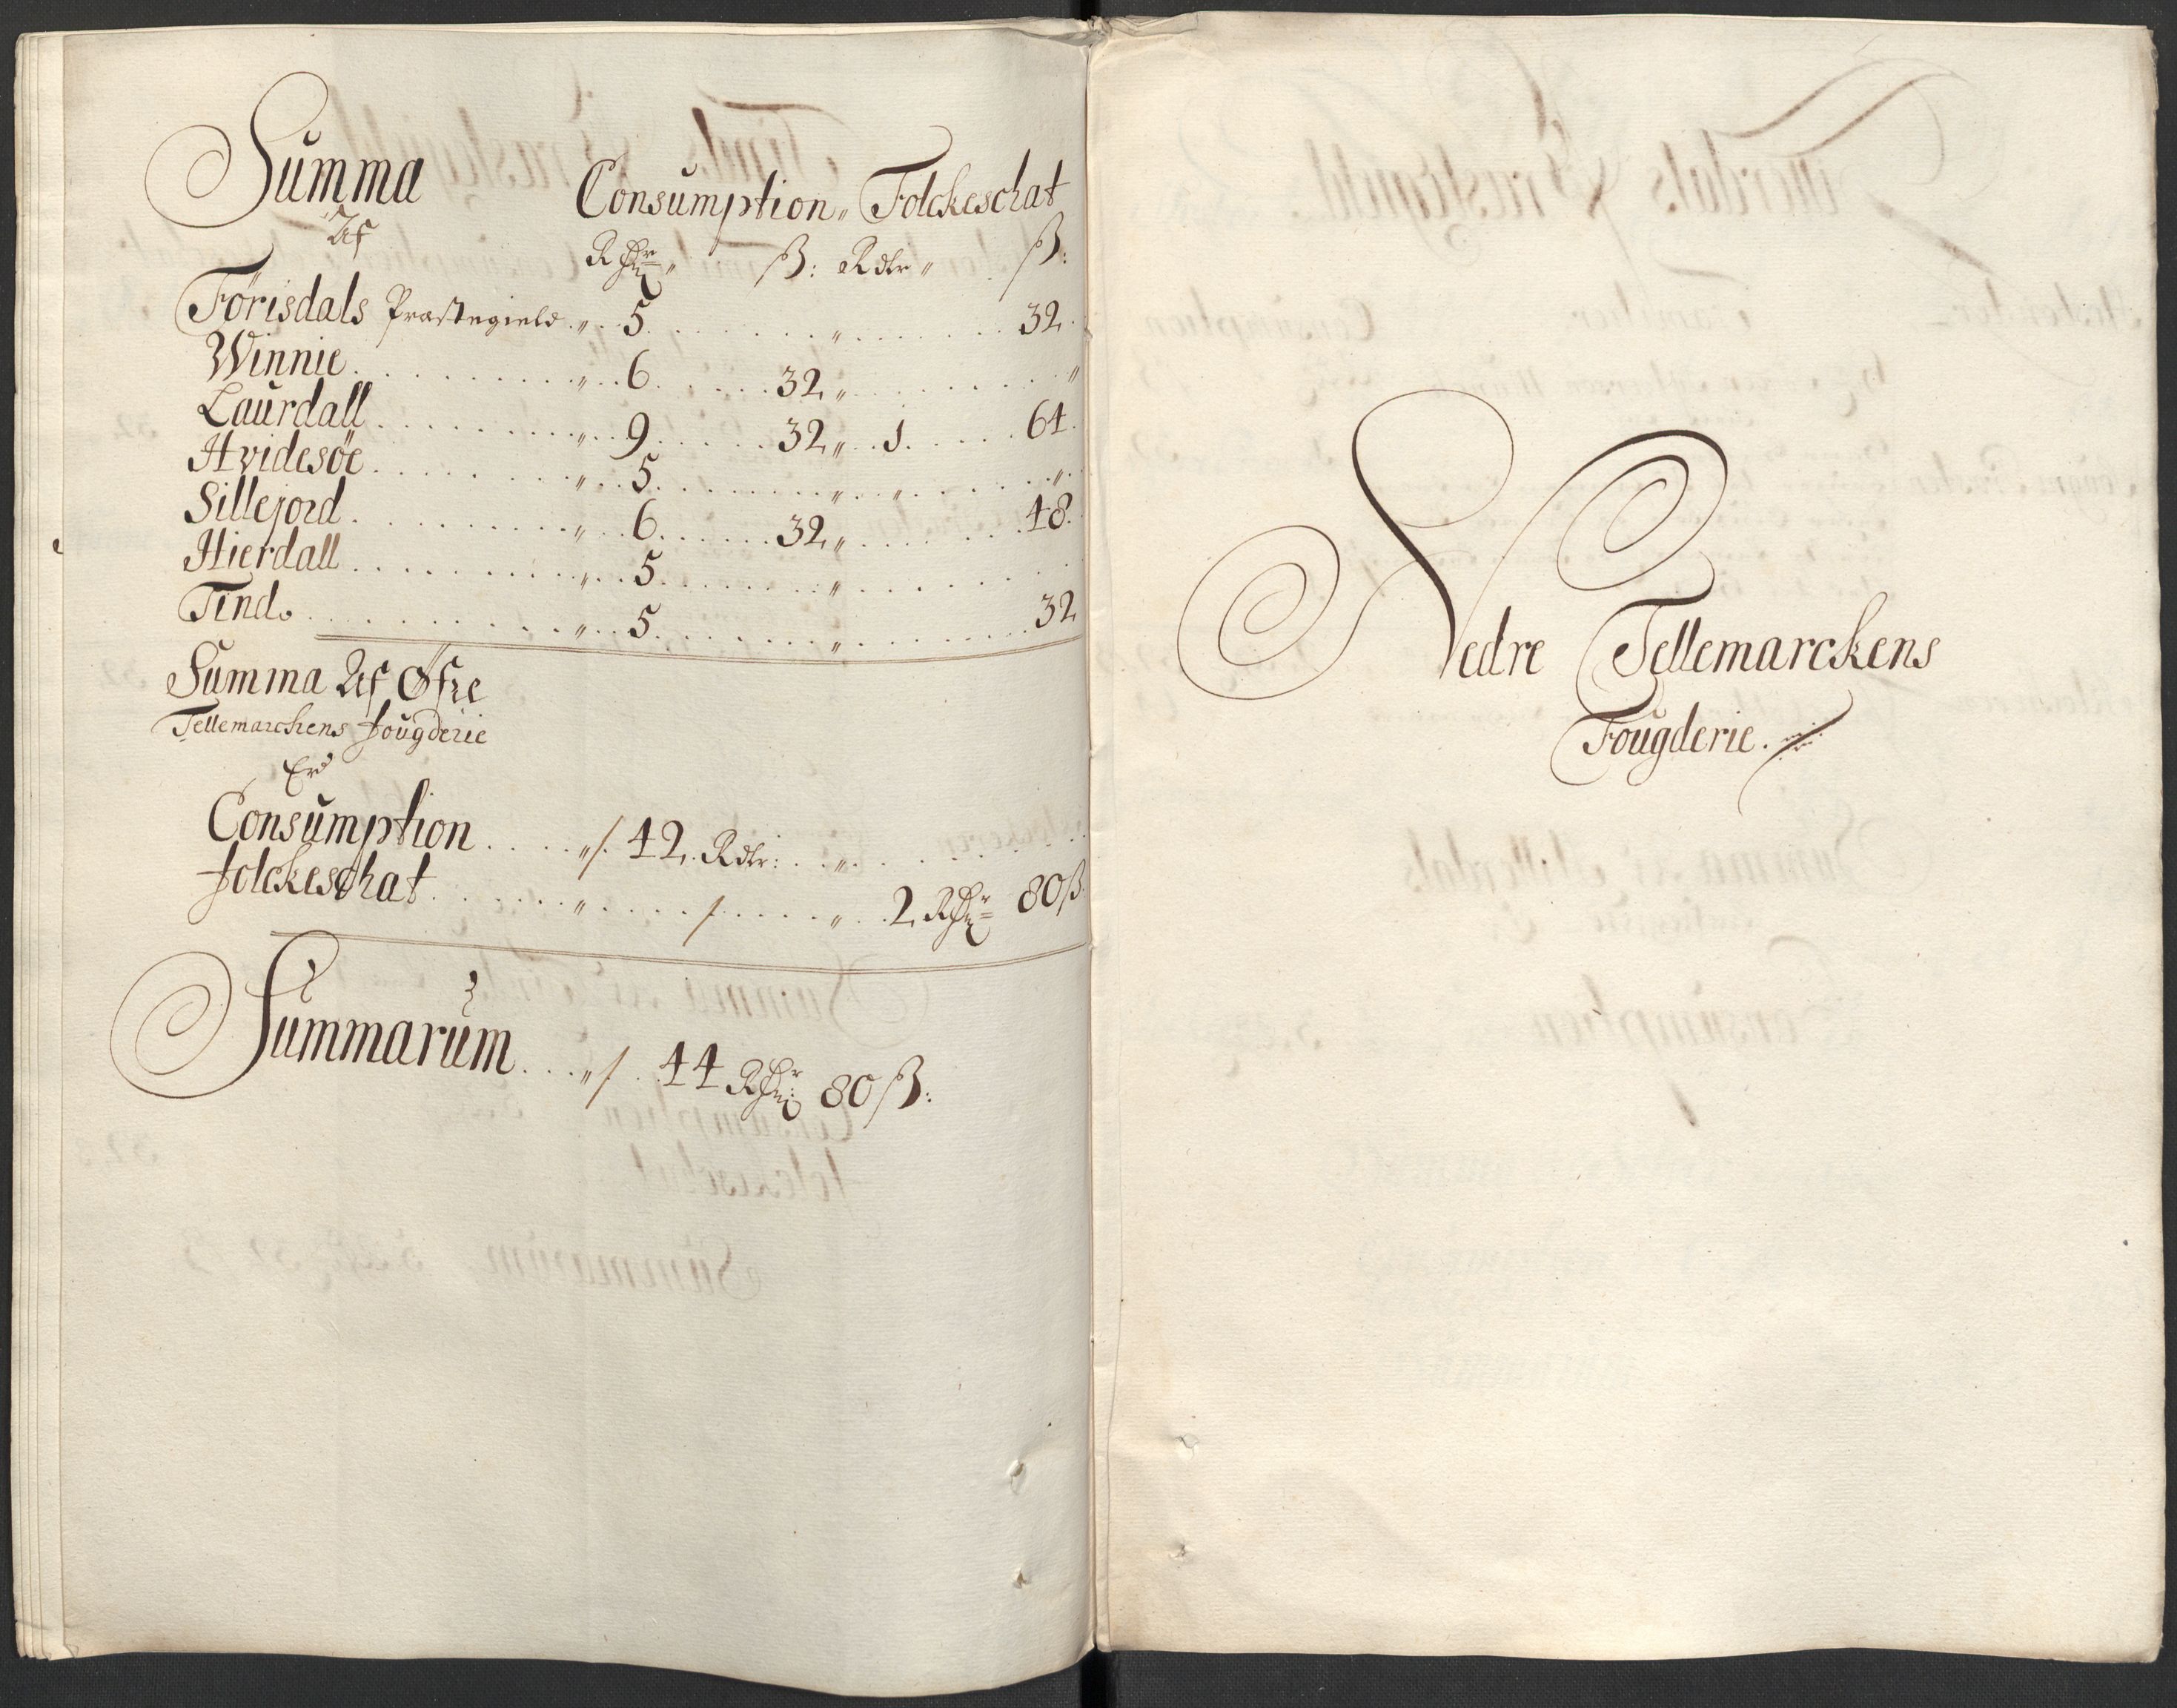 Summa
Af
Consumption „ Folckeschat
Rdr „ ß: Rdlr „ ß:
Förisdals Præstegield „ 5 „ 32
Winnie „ 6 32 „ „
Laurdall „ 9 32 „ 1 64
Hvidesöe „ 5 „ „ „
Sillejord „ 6 32 „ 48
Hierdall „ 5 „
Tind „ 5 „ 32
Summa Af Øfre
Tellemarckens fougderie
Er
Consumption „ /. 42 Rdlr: „
folckeschat „ / „ 2 Rdr 80 ß
Summarum „ /. 44 Rdr: 80 ß:
Nedre Tellemarckens
Fougderie.